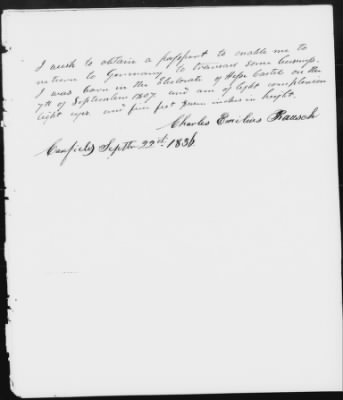 I wish to obtain a passport to enable me to
return to Germany to transact some business.
I was born in the Electorate of Hesse Castle on the
7th of September 1807 and am of light complexion
light eyes and five feet seven inches in height.
Charles Emilius Rausch
Canfield, Septbr 22nd 1836